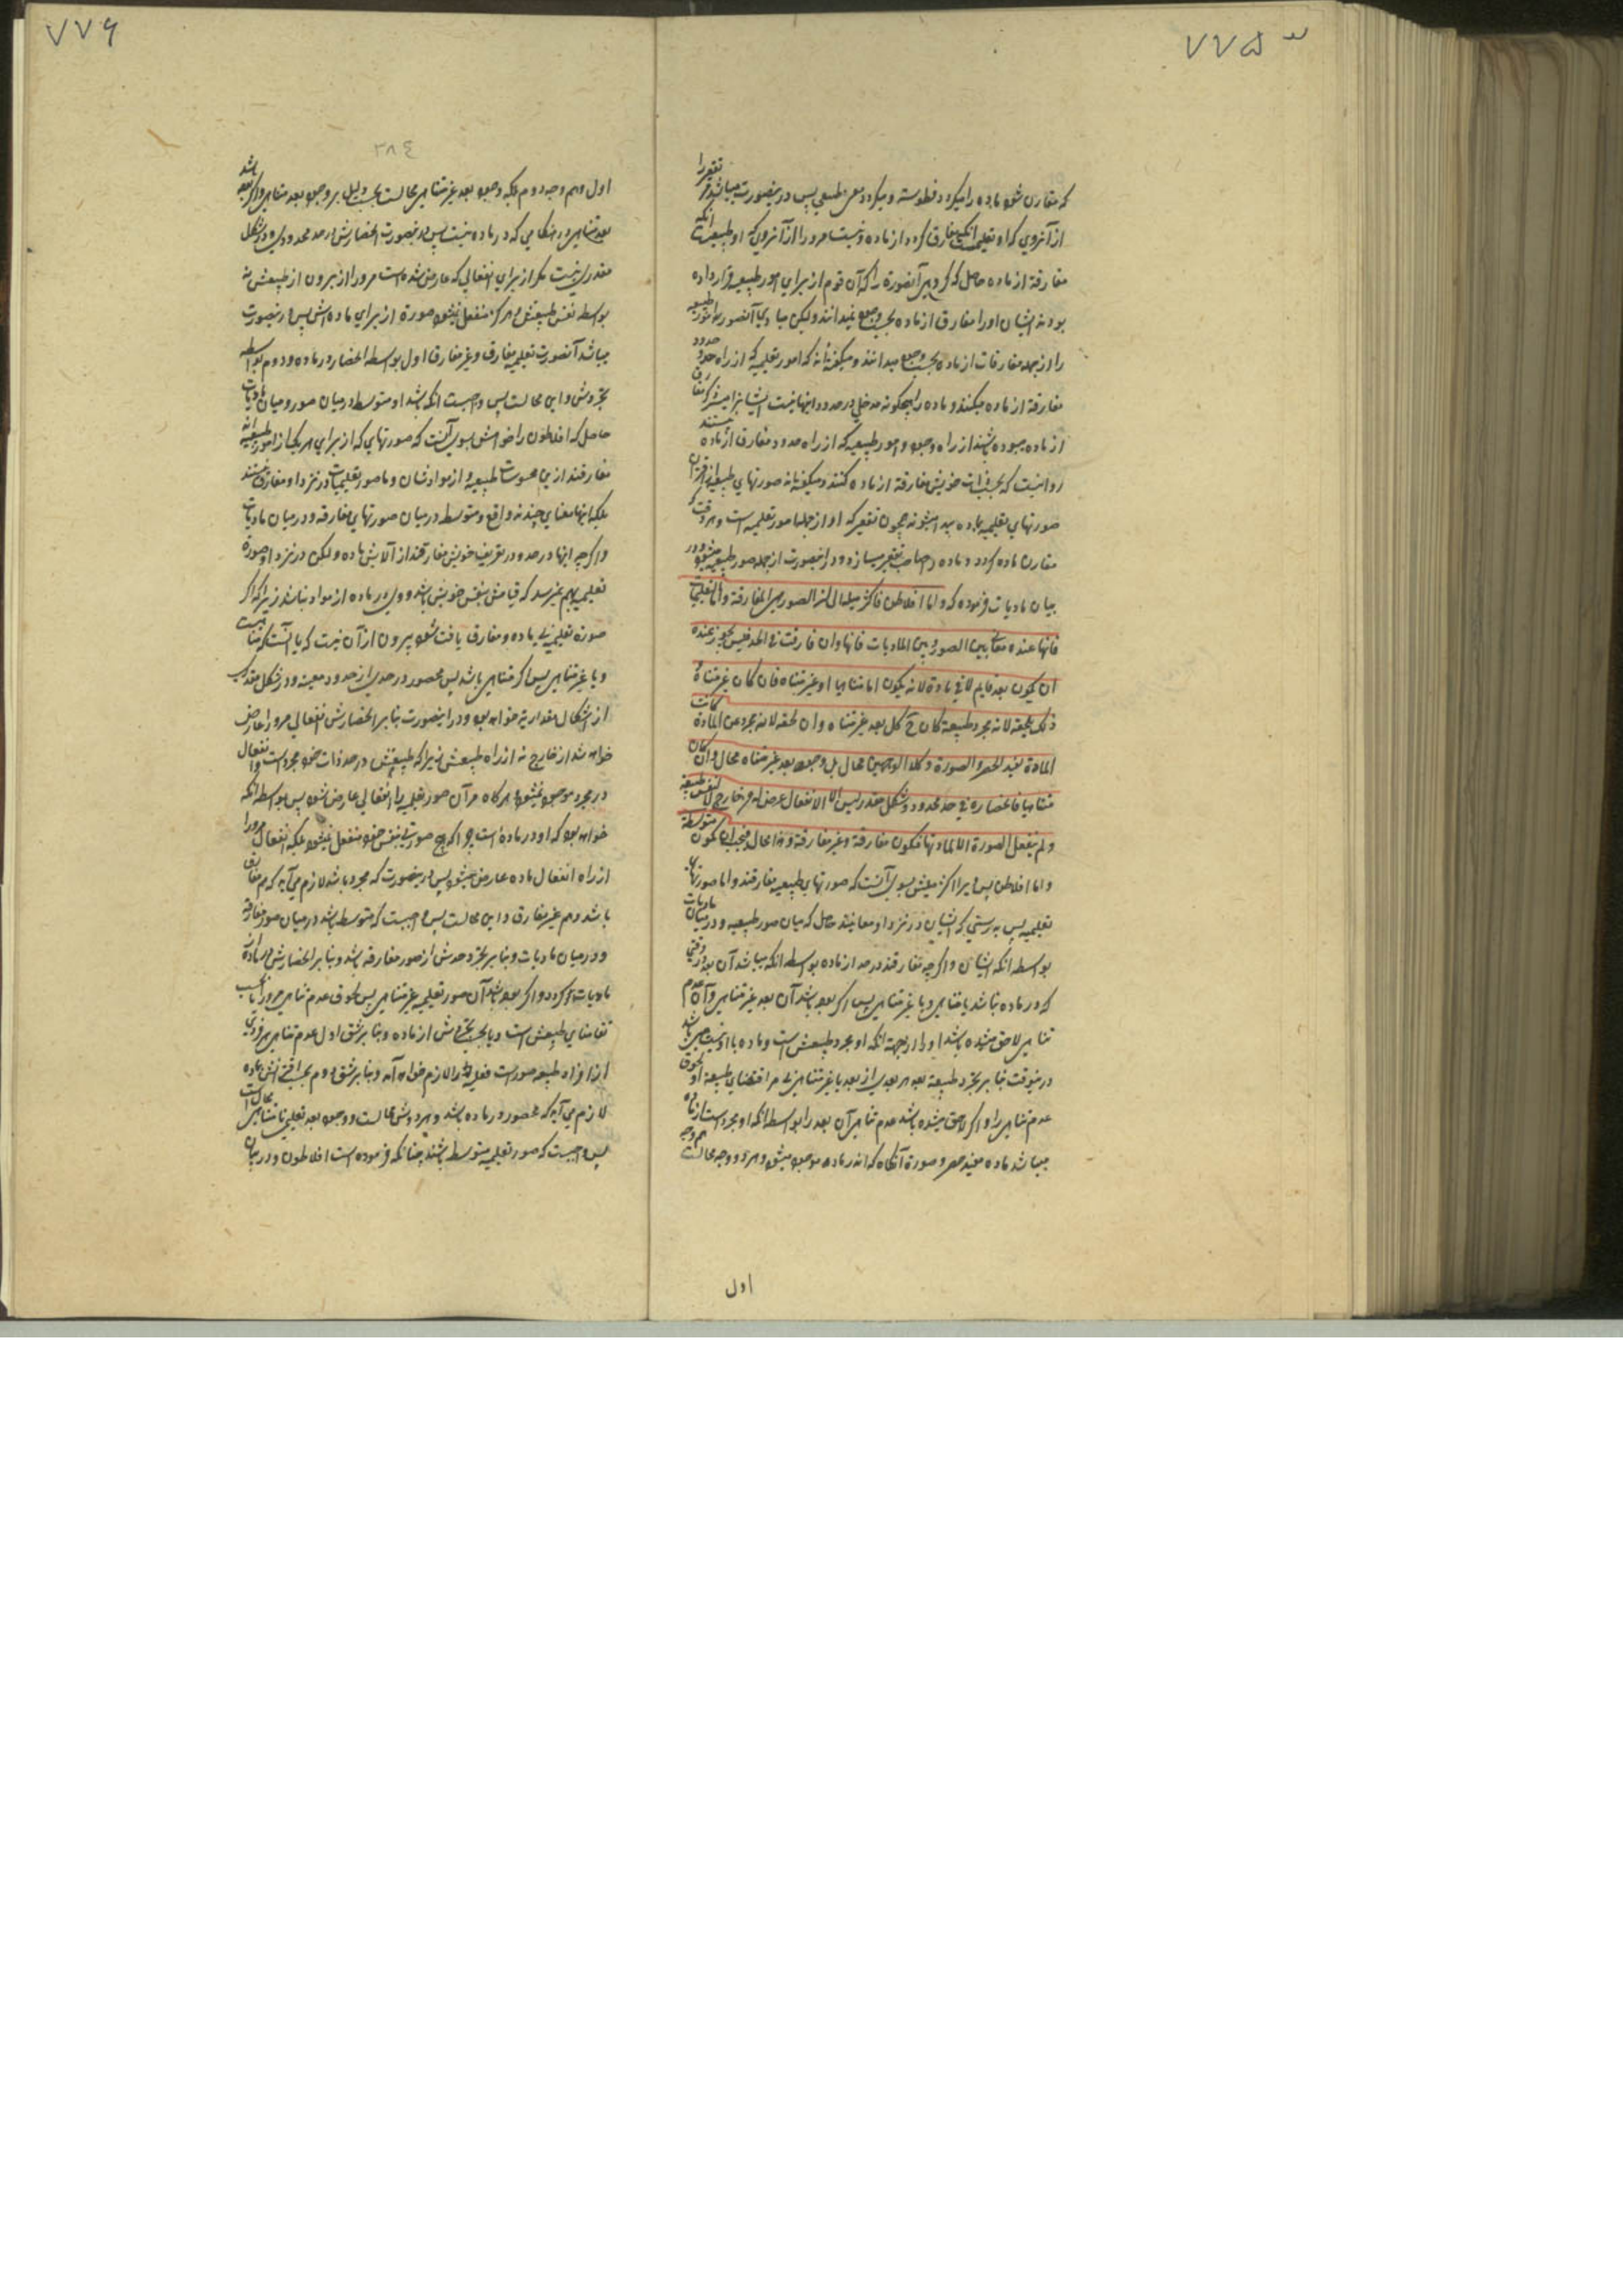 ۷۷۵
که مقارن شود ماده را میگردد فطوسته و میگردد معنی طبیعی پس درینصورت میباشد مر تقعیر را
از آنروی که او تعلیمیست آنکه مفارق گردد از ماده و نیست مرورا از آنروی که او طبیعیست آنکه
مفارقة از ماده حاصل که گروهی آنصورة را که آن قوم از برای امور طبیعیه قرار داده
بودند ایشان اورا مفارق از ماده بحسب وجود نمیدانند ولیکن مبادی آنصور امور طبیعیه
را از جمله مفارقات از ماده بحسب وجود میدانند و میگفته‌اند که امور تعلیمیه که از راه حدود
مفارقة از ماده میکنند و ماده را هیچگونه مدخلی در حدود اینها نیست ایشانرا میشود که مفارق
از ماده بوده باشند از راه وجود و امور طبیعیه که از راه حدود مفارق از ماده نیستند
روا نیست که بحسب ذات خویش مفارقة از ماده کنند و میگفته‌اند صورتهای طبیعیه از اقتران
صورتهای تعلیمیه بماده پیدا میشوند همچون تقعیر که او از جمله امور تعلیمیه است و هر وقت که
مقارن ماده گردد و ماده را صاحب تقعیر سازد و در اینصورت از جمله صور طبیعیه میشود و در
بیان مادیات فرموده که و اما افلاطن فاکثر میله الی ان الصور هی المفارقة و اما التعلیمیات
فانها عنده معانی بین الصور و بین المادیات فانها و ان فارقت فی الحد فلیس یجوز عنده
ان یکون بعد قایم لا فی مادة لانه یکون اما متناهیا او غیر متناه فان کان غیر متناه و
ذلک یلحقه لانه مجرد طبیعة کان ح کل بعد غیر متناه و ان لحقه لانه مجرد عن المادة کانت
المادة تفید الحصر و الصورة و کلا الوجهین محال بل وجود بعد غیر متناه محال و ان کان
متناهیا فانحصاره فی حد محدود و شکل مقدر لیس الا لانفعال عرض له من خارج لا لنفس طبیعته
و لم ینفعل الصورة الا لمادتها فتکون مفارقة و غیر مفارقة و هذا محال فیجب ان تکون متوسطة
و اما افلاطن پس هر اکثر میلش بسوی آنست که صورتهای طبیعیه مفارقند و اما صورتهای
تعلیمیه پس بدرستی که ایشان در نزد او معانیند حاصل که میان صور طبیعیه و در میان مادیات
بواسطه آنکه ایشان و اگرچه مفارقند در حد از ماده بواسطه آنکه میباشد آن بعد در وقتی
که در ماده نباشد یا متناهی و یا غیر متناهی پس اگر بعد باشد آن بعد غیر متناهی و آن عدم
تناهی لاحق شده باشد اورا از جهة آنکه او مجرد طبیعتش است و ماده با او نیست میباشد
درینوقت بنابر تجرد طبیعة بعد هر بعدی از بعد یا غیر متناهی از اقتضای طبیعة او لحوق
عدم تناهی را و اگر لاحق میشده باشد عدم تناهی آن بعد را بواسطه آنکه او مجرد است از ماده
میباشد ماده مفید حصر و صورة آنگاه که اندر ماده موجود میشود و هر دو وجه محالست هم وجه
اول
۷۷۶
۳۸٤
اول و هم وجه دوم بلکه وجود بعد غیر متناهی محالست بحسب دلیل بر وجود بعد متناهی و اگر بعد باشد
بعد متناهی در هنگامی که در ماده نیست پس درینصورت انحصارش در حد محدودی و در شکل
مقدری نیست مگر از برای انفعالی که عارض شده است مرورا از بیرون از طبیعتش نه
بواسطه نفس طبیعتش و هرگز منفعل نمیشود صورة از برای ماده‌اش پس درینصورت
میباشد آنصورت تعلیمیه مفارق و غیر مفارق اول بواسطه انحصار در ماده و دوم بواسطه
تجردش و این محالست پس واجبست آنکه باشد او متوسط در میان صور و میان مادیات
حاصل که افلاطون را خواهش بسوی آنست که صورتهای که از برای هر یکی از امور طبیعیه‌اند
مفارقند از این محسوسات طبیعیه و از موادشان و اما صور تعلیمیات در نزد او مفارق نیستند
بلکه اینها معنای چندند واقع و متوسط در میان صورتهای مفارقه و در میان مادیات
و اگر چه اینها در حدود و تعریف خویش مفارقند از آلایش ماده ولیکن در نزد او صورة
تعلیمیه بهم نمیرسد که قیامش بنفس خویش باشد و در ماده از مواد نباشد زیرا که اگر
صورة تعلیمیه بی ماده و مفارق یافت شود بیرون از آن نیست که یا آنست که متناهیست
و یا غیر متناهی پس اگر متناهی باشد پس محصور در حدی از حدود معینه و در شکل مقداری
از اشکال مقداریه خواهد بود و در اینصورت بنابر انحصارش انفعالی مرورا عارض
خواهد شد از خارج نه از راه طبیعتش زیرا که طبیعتش در حد ذات خود مجرد است و انفعال
در مجرد موجود نمیشود و هرگاه مر آن صور تعلیمیه را انفعالی عارض شود پس بواسطه آنکه
خواهد بود که او در ماده است چرا که هیچ صورتی بنفس خود منفعل نمیشود بلکه انفعال مرورا
از راه انفعال ماده عارض میشود پس درینصورت که مجرد باشد لازم می‌آید که هم مفارق
باشد و هم غیر مفارق و این محالست پس واجبست که متوسط باشد در میان صور مفارقه
و در میان مادیات و بنابر تجرد حدش از صور مفارقه باشد و بنابر انحصارش در ماده از
مادیات گردد و اگر بعد باشد آن صور تعلیمیه غیر متناهی پس لحوق عدم تناهی مرورا یا بحسب
تقاضای طبیعتش است و یا بحسب تجردش از ماده و بنابر شق اول عدم تناهی هر فردی
از افراد طبیعه صورت تعلیمیه را لازم خواهد آمد و بنابر شق دوم بحسب اقترانش بماده
لازم می‌آید که محصور در ماده باشد و هر دو شق محالست و وجود بعد تعلیمی نامتناهی محال است
پس واجبست که صور تعلیمیه متوسط باشند چنانکه فرموده است افلاطون و در بیان